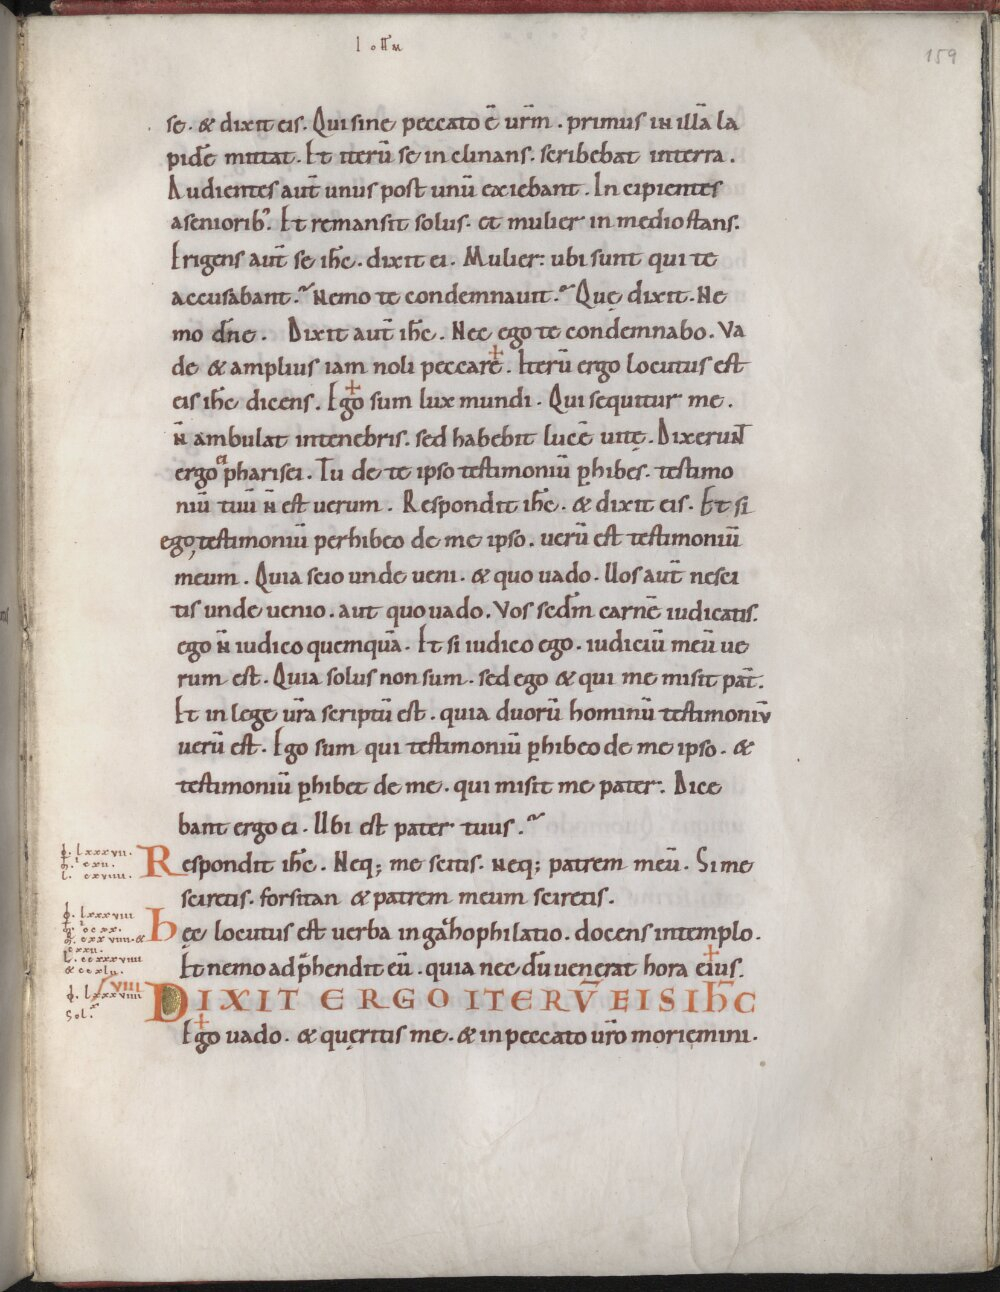 159
se. & dixit eis. Qui sine peccato ē urm̄. primus in illā la
pidē mittat. Et iterū se inclinans. scribebat interra.
Audientes aut̄ unus post unū exiebant. Incipientes
aseniorib⁹. Et remansit solus. et mulier in medio stans.
Erigens aut̄ se ihc̄. dixit ei. Mulier: ubi sunt qui te
accusabant. Nemo te condemnauit. Quę dixit. Ne
mo dn̄e. Dixit aut̄ ihc̄. Nec ego te condemnabo. Va
de & amplius iam noli peccare. Iterū ergo locutus est
eis ihc̄ dicens. Ego sum lux mundi. Qui sequitur me.
n̄ ambulat intenebris. sed habebit lucē uitę. Dixerunt
ergo ei pharisei. Tu de te ipso testimoniū p̄hibes. testimo
niū tuū n̄ est uerum. Respondit ihc̄. & dixit eis. Et si
ego testimoniū perhibeo de me ipso. uerū est testimoniū
meum. Quia scio unde ueni. & quo uado. Uos aut̄ nesci
tis unde uenio. aut quo uado. Vos secdm̄ carnē iudicatis.
ego n̄ iudico quemquā. Et si iudico ego. iudiciū meū ue
rum est. Quia solus non sum. sed ego & qui me misit pat̄.
Et in lege ur̄a scriptū est. quia duorū hominū testimoniū
uerū est. Ego sum qui testimoniū p̄hibeo de me ipso. &
testimoniū p̄hibet de me. qui misit me pater. Dice
bant ergo ei. Ubi est pater tuus.
φ. lxxxvii.
Respondit ihc̄. Neq; me scitis. Neq; patrem meū. Si me
l. cxviiii.
sciretis. forsitan & patrem meum sciretis.
φ. lxxxviii
hęc locutus est uerba in gazophilatio. docens intemplo.
Et nemo adp̄hendit eū. quia nec dū uenerat hora eius.
& ccxlu.
VIII
φ. lxxxviiii
DIXIT ERGO ITERV̄ EIS IHC̄
Sol.
Ego uado. & quęritis me. & in peccato ur̄o moriemini.